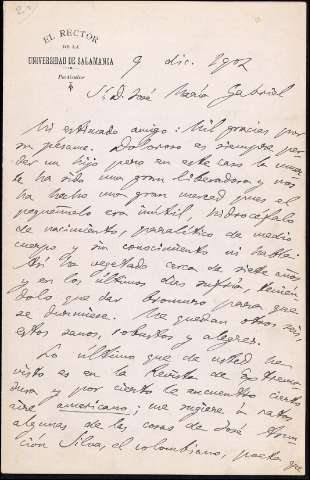 EL RECTOR
DE LA
UNIVERSIDAD DE SALAMANCA
Particular
9 dic. 1902
Sr. D. José María Gabriel
Mi estimado amigo: Mil gracias por
su pésame. Doloroso es siempre per-
der un hijo pero en este caso la muer-
te ha sido una gran libertadora y nos
ha hecho una gran merced pues el
pequeñuelo era inútil, hidrocéfalo
de nacimiento, paralítico de medio
cuerpo y sin conocimiento ni habla.
Así ha vegetado cerca de siete años
y en los últimos días sufría, tenién
dolo que dar bromuro para que
se durmiese. Me quedan otros seis,
estos sanos, robustos y alegres.
Lo último que de usted he
visto es en la Revista de Extrema
dura y por cierto le encuentro cierto
aire americano; me sugiere a ratos
algunas de las cosas de José Asun-
ción Silva, el colombiano, poeta que